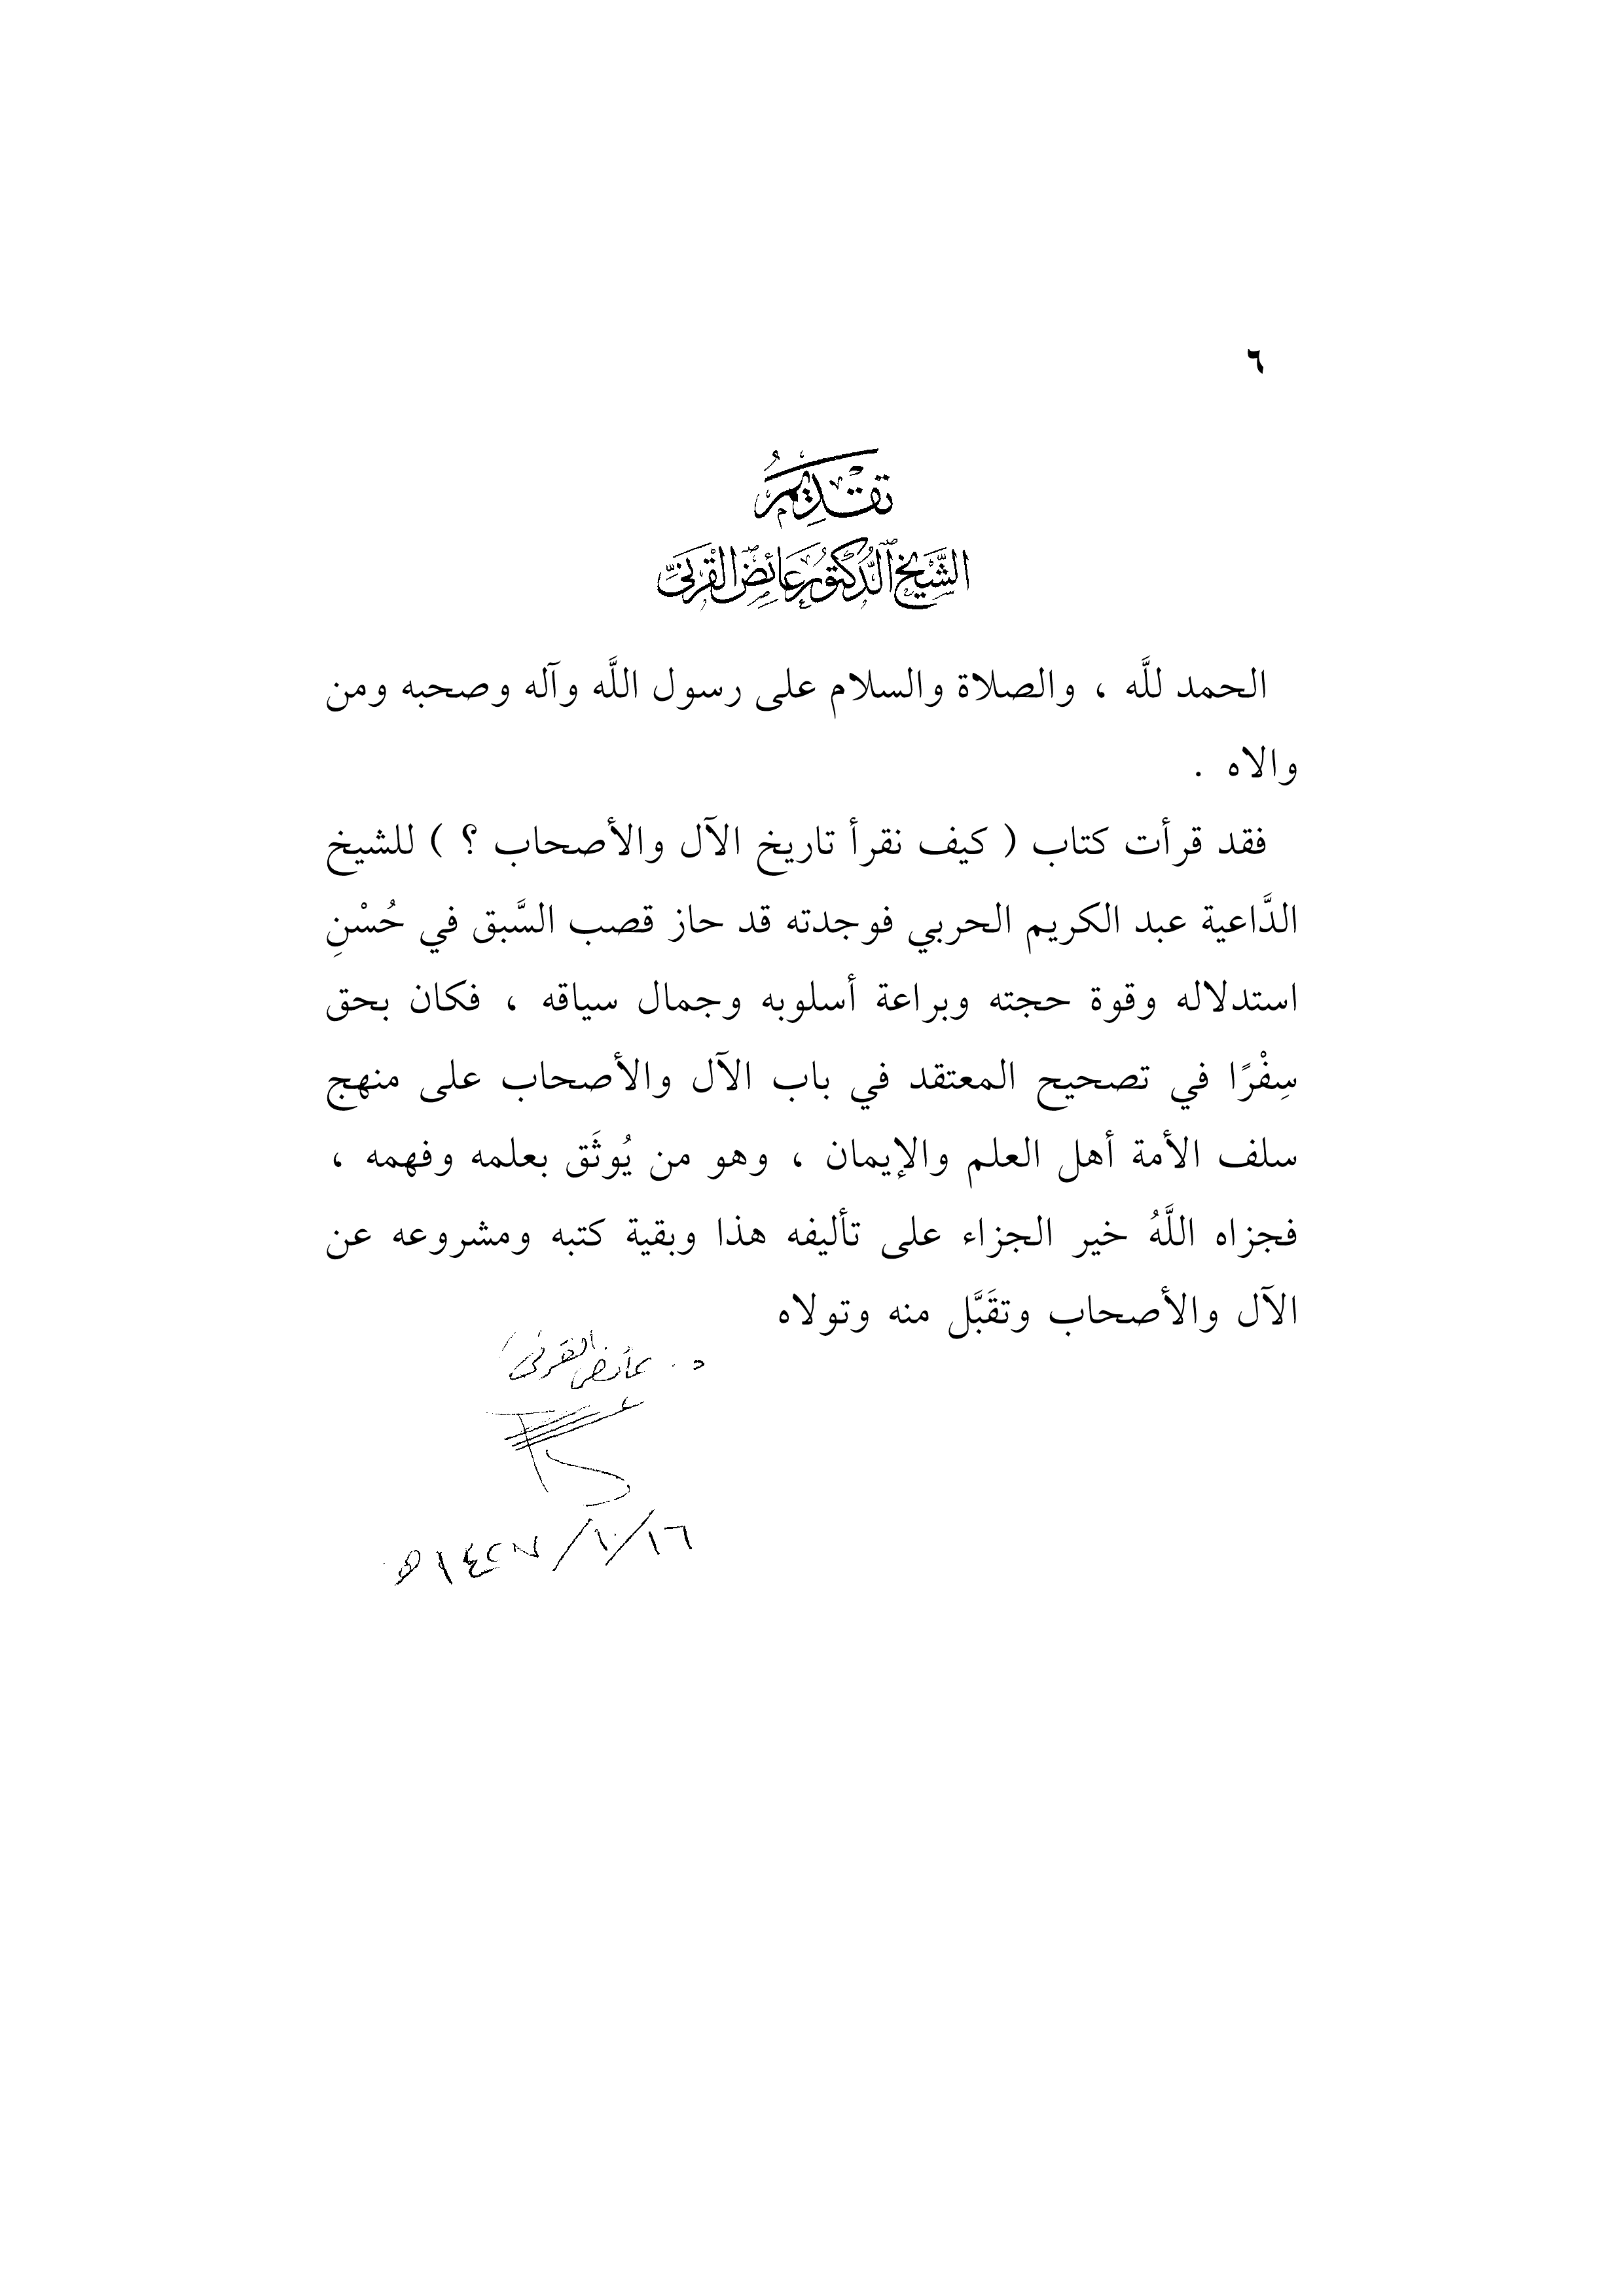 ٦
تقديم
الشيخ الدكتور عائض القرني
الحمد للَّه ، والصلاة والسلام على رسول اللَّه وآله وصحبه ومن
والاه .
فقد قرأت كتاب ( كيف نقرأ تاريخ الآل والأصحاب ؟ ) للشيخ
الدَّاعية عبد الكريم الحربي فوجدته قد حاز قصب السَّبق في حُسْنِ
استدلاله وقوة حجته وبراعة أسلوبه وجمال سياقه ، فكان بحق
سِفْرًا في تصحيح المعتقد في باب الآل والأصحاب على منهج
سلف الأمة أهل العلم والإيمان ، وهو من يُوثَق بعلمه وفهمه ،
فجزاه اللَّهُ خير الجزاء على تأليفه هذا وبقية كتبه ومشروعه عن
الآل والأصحاب وتقَبَّل منه وتولاه
د. عائض القرني
١٦/١٠/١٤٢٧هـ